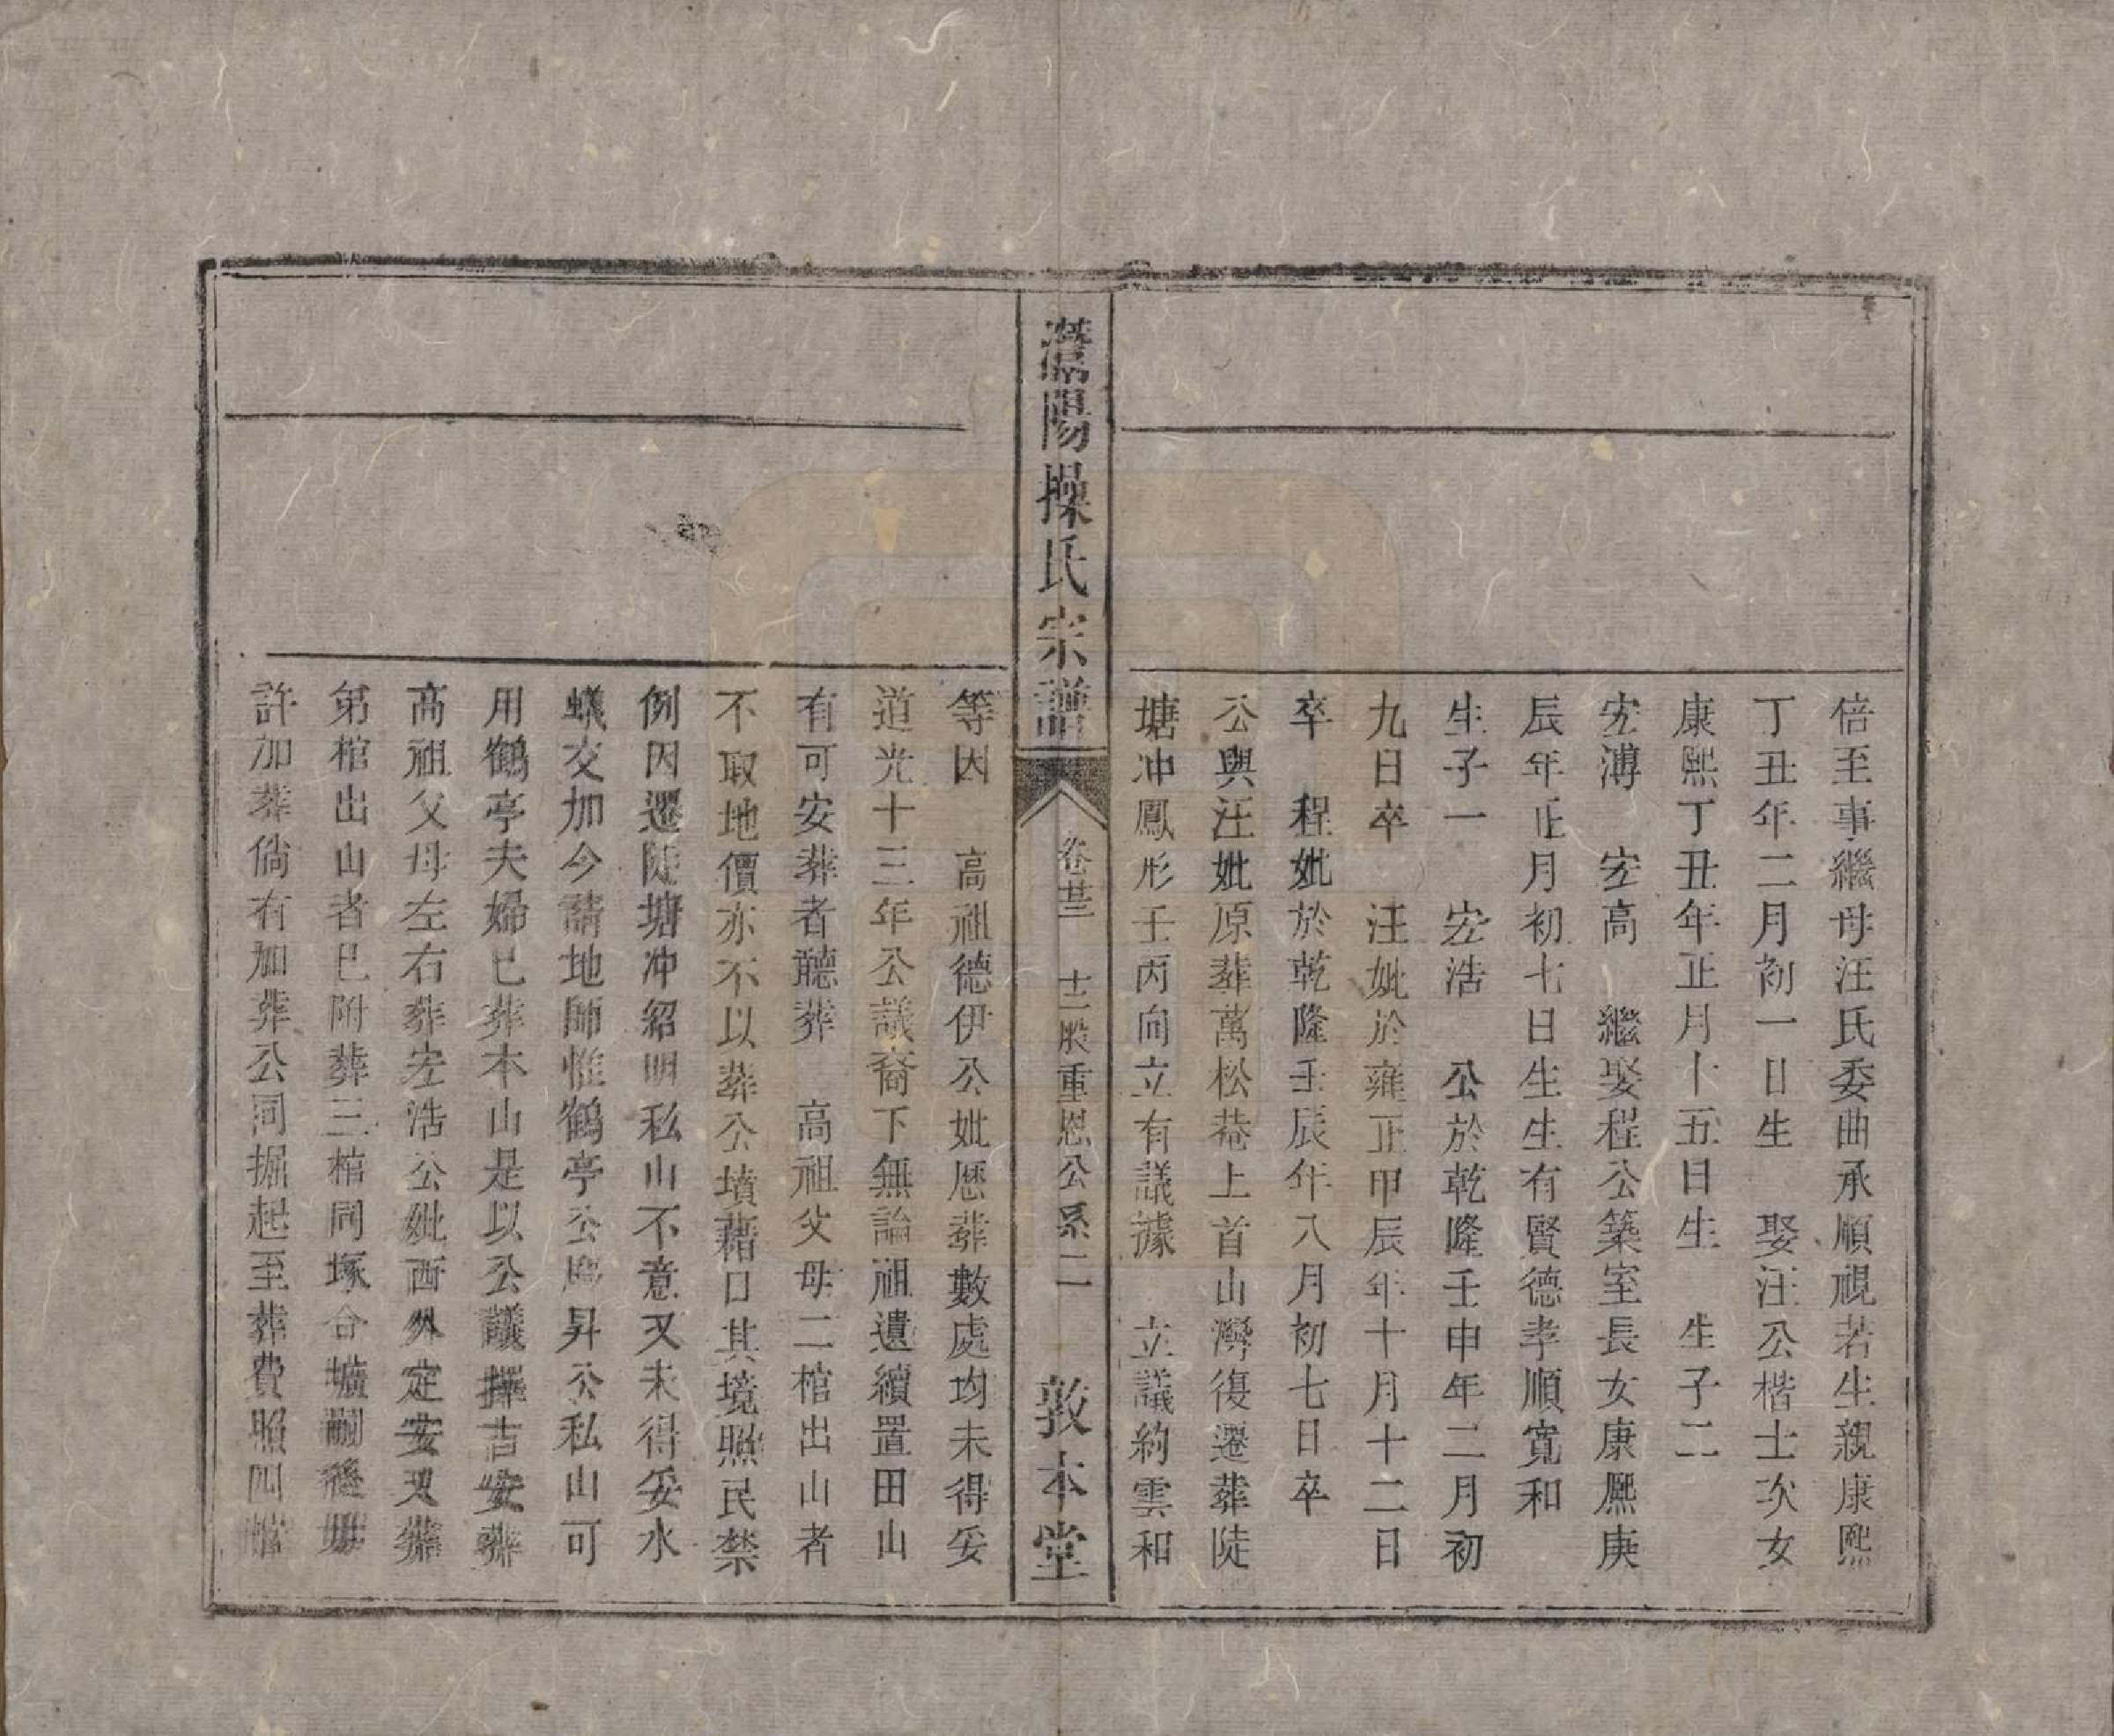 倍至事繼母汪氏委曲承順視若生親康熙
丁丑年二月初一日生　娶汪公楷士次女
康熙丁丑年正月十五日生　生子二
宏溥　宏高　繼娶程公築室長女康熙庚
辰年正月初七日生生有賢德孝順寬和
生子一　宏浩　公於乾隆壬申年二月初
九日卒　汪妣於雍正甲辰年十月十二日
卒　程妣於乾隆壬辰年八月初七日卒
公與汪妣原葬萬松菴上首山灣復遷葬陡
塘冲鳳形壬丙向立有議據　立議約雲和
灊陽操氏宗譜　卷廿三　十二股重恩公系二　敦本堂
等因　高祖德伊公妣歷葬數處均未得妥
道光十三年公議裔下無論祖遺續置田山
有可安葬者聽葬　高祖父母二棺出山者
不取地價亦不以葬公墳藉口其境照民禁
例因遷陡塘冲紹明私山不意又未得妥水
蟻交加今請地師惟鶴亭公昇公私山可
用鶴亭夫婦已葬本山是以公議擇吉安葬
高祖父母左右葬宏浩公妣西外定安又葬
第棺出山者已附葬三棺同塚合壙嗣後毋
許加葬倘有加葬公同掘起至葬費照四